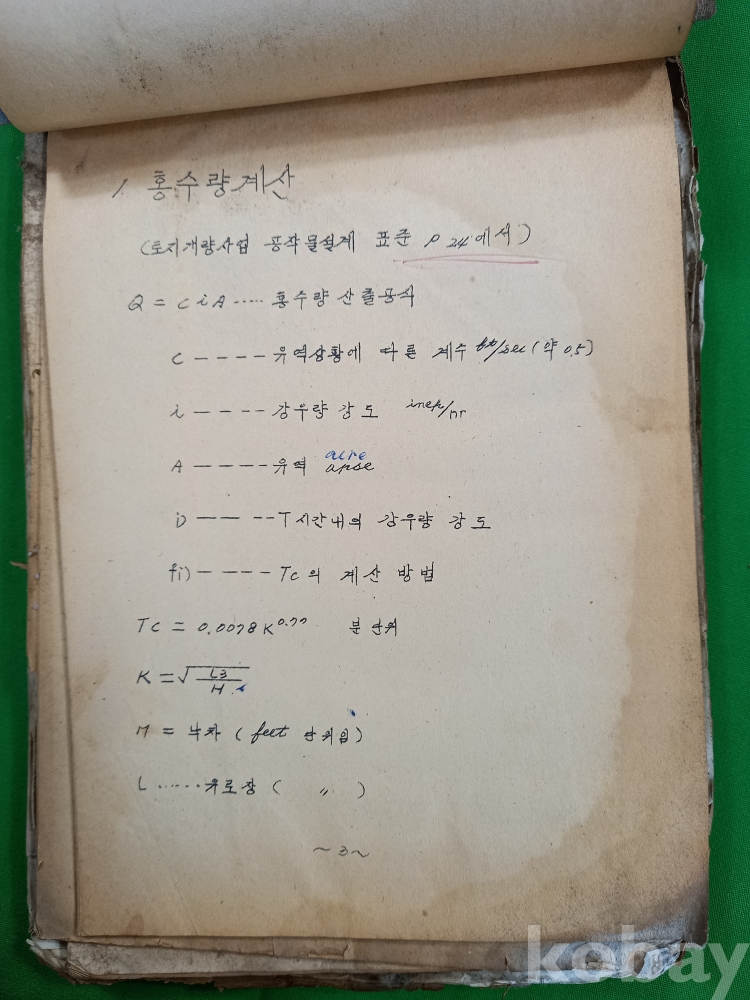 1. 홍수량계산
(토지개량사업 공작물설계 표준 P 24에서)
Q = C i A ..... 홍수량 산출공식
C ---- 유역상황에 따른 계수 ft/sec (약 0.5)
i ---- 강우량 강도 inch/hr
acre
A ---- 유역 apse
i) ---- T시간내의 강우량 강도
fi) ---- Tc의 계산 방법
Tc = 0.0078 K^0.77 분단위
K = √(L3/H)
H = 낙차 (feet 단위임)
L ...... 유로장 ( 〃 )
~3~
kobay